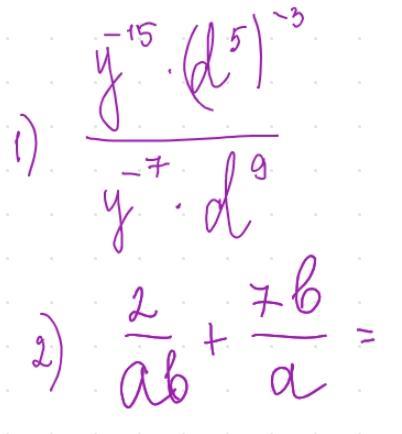 1) \frac{y^{-15} \cdot (d^5)^{-3}}{y^{-7} \cdot d^9}
2) \frac{2}{ab} + \frac{7b}{a} =